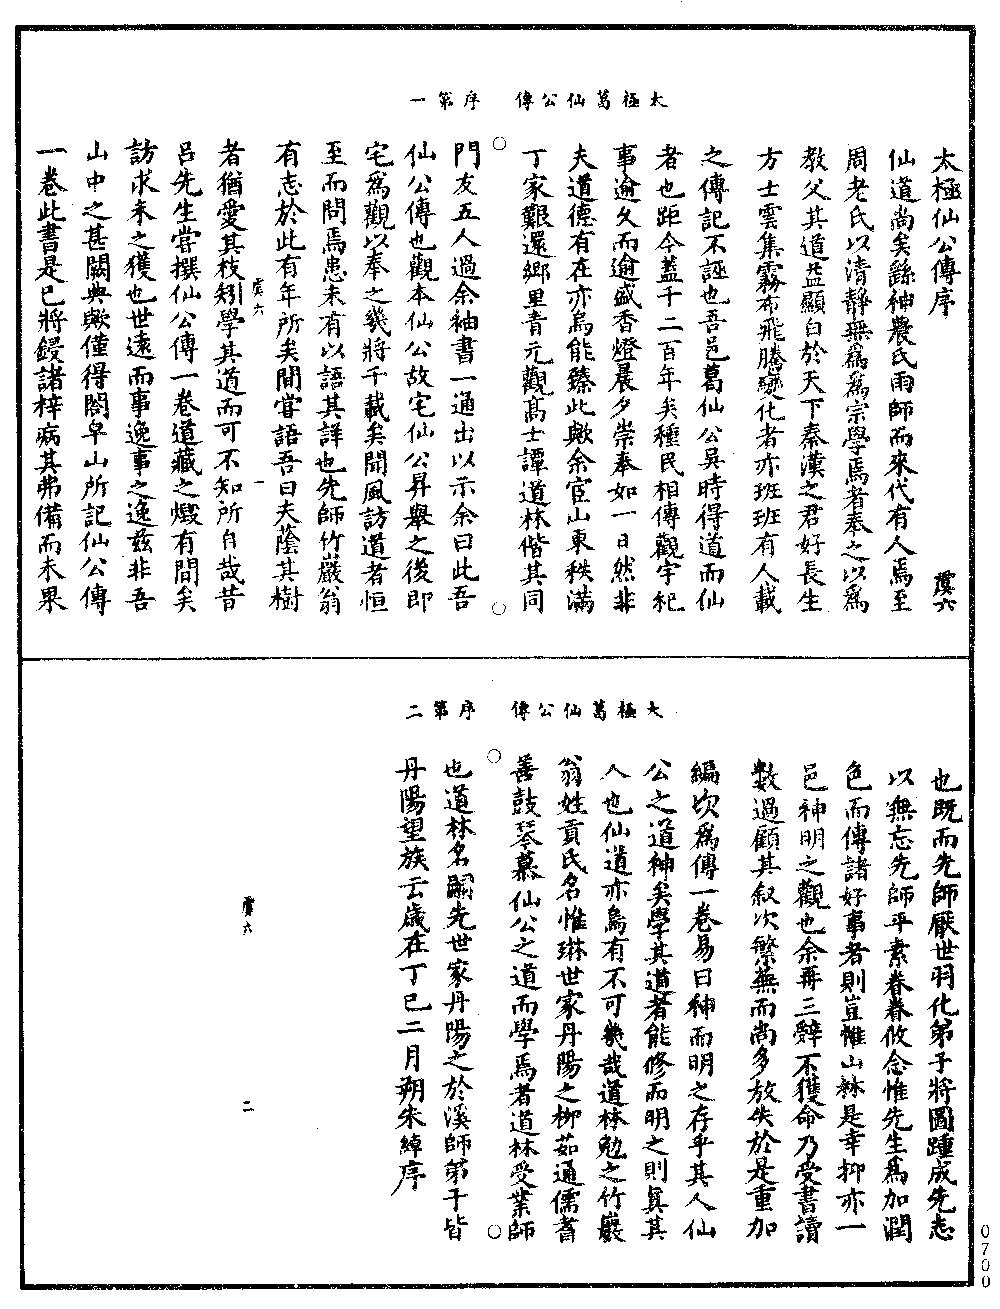 太極葛仙公傳　序第一
太極仙公傳序
虞六
仙道尚矣繇神農氏雨師而來代有人焉至
周老氏以清靜無為為宗學焉者奉之以為
教父其道益顯白於天下秦漢之君好長生
方士雲集霧布飛騰變化者亦班班有人載
之傳記不誣也吾邑葛仙公吳時得道而仙
者也距今蓋千二百年矣種民相傳觀宇祀
事逾久而逾盛香燈晨夕崇奉如一日然非
夫道德有在亦烏能臻此歟余宦山東秩滿
丁家艱還鄉里青元觀高士譚道林偕其同
門友五人過余袖書一通出以示余曰此吾
仙公傳也觀本仙公故宅仙公昇舉之後即
宅為觀以奉之幾將千載矣聞風訪道者恒
至而問焉患未有以語其詳也先師竹巖翁
有志於此有年所矣間嘗語吾曰夫蔭其樹
虞六　一
者猶愛其枝矧學其道而可不知所自哉昔
呂先生嘗撰仙公傳一卷道藏之燬有間矣
訪求未之獲也世遠而事逸事之逸茲非吾
山中之甚闕典歟僅得閤皁山所記仙公傳
一卷此書是已將鋟諸梓病其弗備而未果
太極葛仙公傳　序第二
也既而先師厭世羽化弟子將圖踵成先志
以無忘先師平素眷眷攸念惟先生為加潤
色而傳諸好事者則豈惟山林是幸抑亦一
邑神明之觀也余再三辭不獲命乃受書讀
數過顧其叙次繁蕪而尚多放失於是重加
編次為傳一卷易曰神而明之存乎其人仙
公之道神矣學其道者能修而明之則真其
人也仙道亦烏有不可幾哉道林勉之竹巖
翁姓貢氏名惟琳世家丹陽之柳茹通儒書
善鼓琴慕仙公之道而學焉者道林受業師
也道林名嗣先世家丹陽之於溪師弟子皆
丹陽望族云歲在丁巳二月朔朱綽序
虞六　二
0700